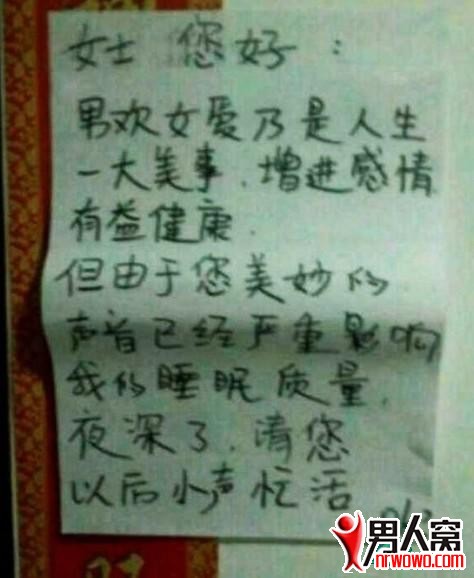 女士 您好:
男欢女爱乃是人生
一大美事.增进感情
有益健康.
但由于您美妙的
声音已经严重影响
我的睡眠质量.
夜深了.请您
以后小声忙活
男人窝
nrwowo.com